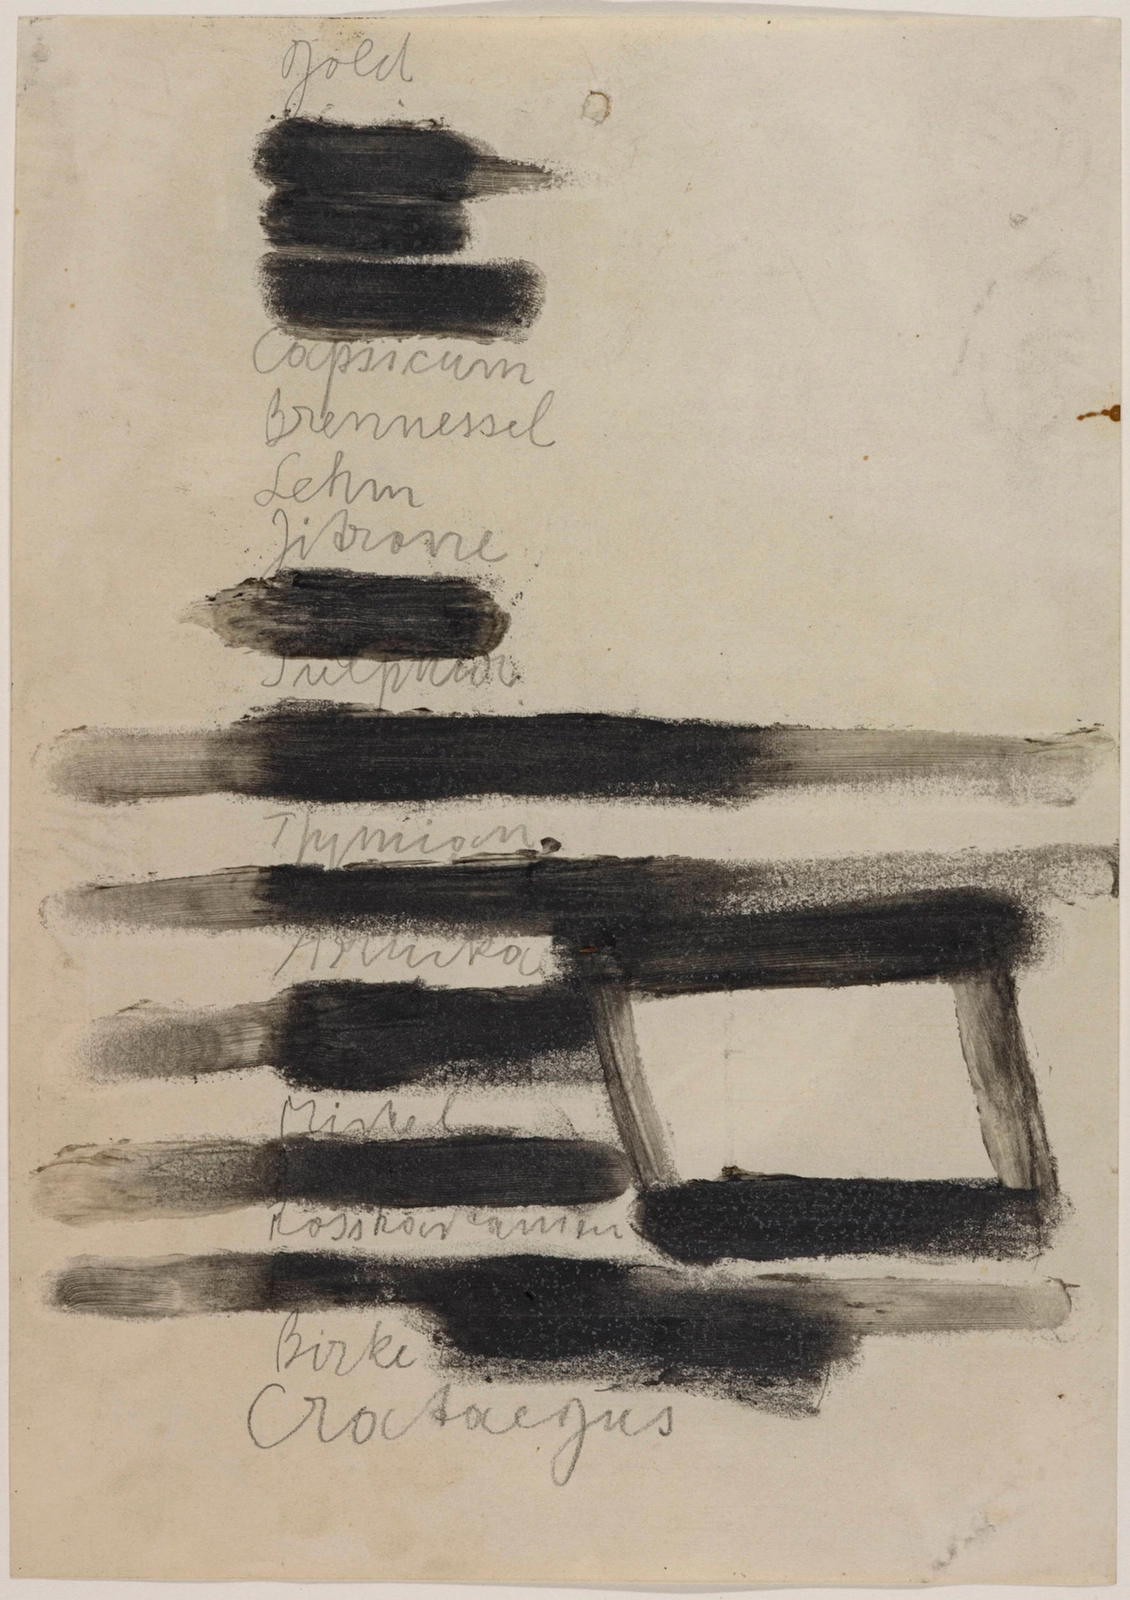 Gold
Capsicum
Brennessel
Lehm
Zitrone
Sulphur
Thymian
Arnika
Mistel
Rosskastanien
Birke
Crataegus